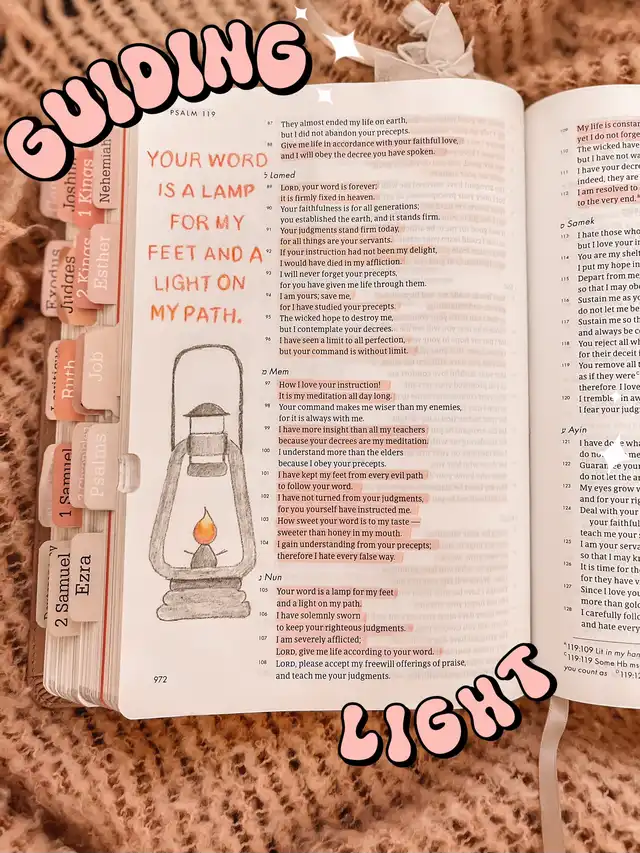 GUIDING
PSALM 119
YOUR WORD
IS A LAMP
FOR MY
FEET AND A
LIGHT ON
MY PATH.
Joshua
1 Kings
Nehemiah
Exodus
Judges
2 Kings
Esther
Leviticus
Ruth
Job
1 Samuel
Psalms
2 Samuel
Ezra
87 They almost ended my life on earth,
but I did not abandon your precepts.
88 Give me life in accordance with your faithful love,
and I will obey the decree you have spoken.
ל Lamed
89 LORD, your word is forever;
it is firmly fixed in heaven.
90 Your faithfulness is for all generations;
you established the earth, and it stands firm.
91 Your judgments stand firm today,
for all things are your servants.
92 If your instruction had not been my delight,
I would have died in my affliction.
93 I will never forget your precepts,
for you have given me life through them.
94 I am yours; save me,
for I have studied your precepts.
95 The wicked hope to destroy me,
but I contemplate your decrees.
96 I have seen a limit to all perfection,
but your command is without limit.
מ Mem
97 How I love your instruction!
It is my meditation all day long.
98 Your command makes me wiser than my enemies,
for it is always with me.
99 I have more insight than all my teachers
because your decrees are my meditation.
100 I understand more than the elders
because I obey your precepts.
101 I have kept my feet from every evil path
to follow your word.
102 I have not turned from your judgments,
for you yourself have instructed me.
103 How sweet your word is to my taste —
sweeter than honey in my mouth.
104 I gain understanding from your precepts;
therefore I hate every false way.
נ Nun
105 Your word is a lamp for my feet
and a light on my path.
106 I have solemnly sworn
to keep your righteous judgments.
107 I am severely afflicted;
LORD, give me life according to your word.
108 LORD, please accept my freewill offerings of praise,
and teach me your judgments.
972
109 My life is constan
yet I do not forge
110 The wicked have
but I have not wa
111 I have your decre
indeed, they are
112 I am resolved to
to the very end.
ס Samek
113 I hate those who
but I love your i
114 You are my shelt
I put my hope in
115 Depart from me,
so that I may obe
116 Sustain me as yo
do not let me be
117 Sustain me so th
and always be c
118 You reject all wh
for their deceit i
119 You remove all t
as if they were
therefore I love
120 I tremble in aw
I fear your judg
ע Ayin
121 I have done wha
do not me
122 Guarantee your
do not let the ar
123 My eyes grow w
and for your rig
124 Deal with your
your faithful
teach me your s
125 I am your serva
so that I may kn
126 It is time for the
for they have v
127 Since I love you
more than gold
128 I carefully follo
and hate every
119:109 Lit in my han
119:119 Some Hb ms
you count as 119:12
LIGHT